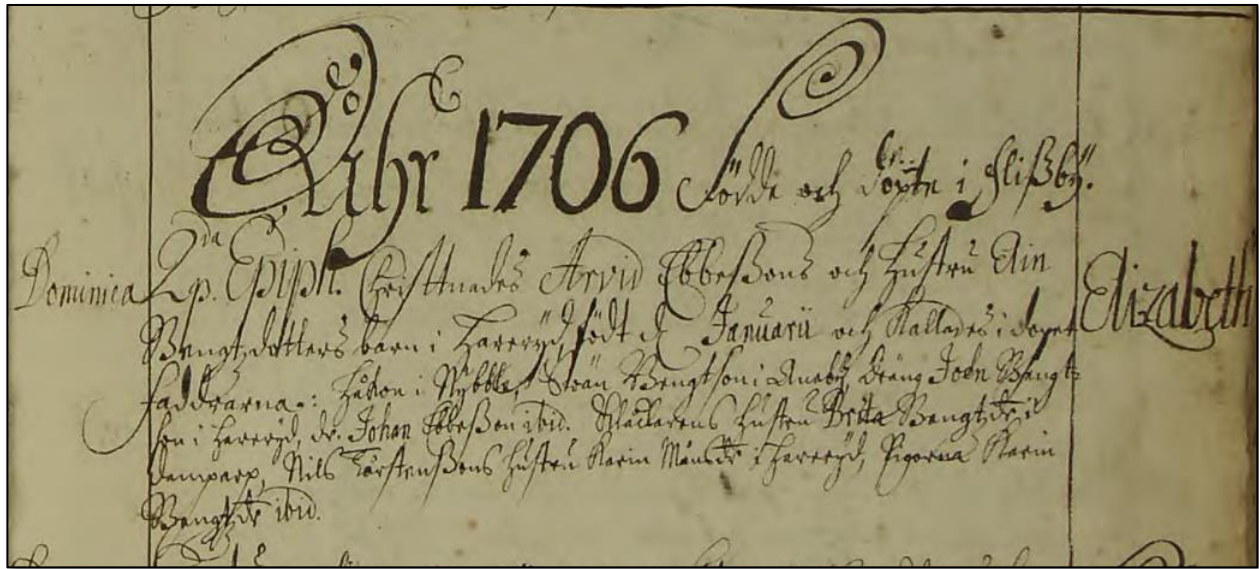 Åhr 1706 Födde och döpte i Flißby.
Dominica 2da p. Epiph. Christtnades Arvid Ebbeßons och hustru Ain Elizabeth
Bengtzdotters barn i Hareryd, födt d Januarii och kallades i dopet
faddrarna: Håkon i Nybble, Swän Bengtson i Aneby, dräng John Bengt=
son i Hareryd, dr. Johan Ebbeßon ibid. hustru Brita Bengtzdr i
Damparp, Nils Torstenßons hustru Karin Månsdr i Hareryd, Pigorna Karin
Bengtzdr ibid.